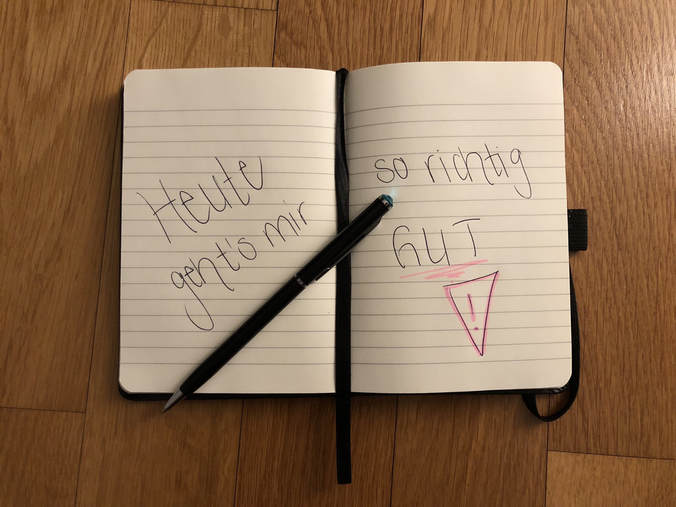 Heute
geht's mir
so richtig
GUT
!